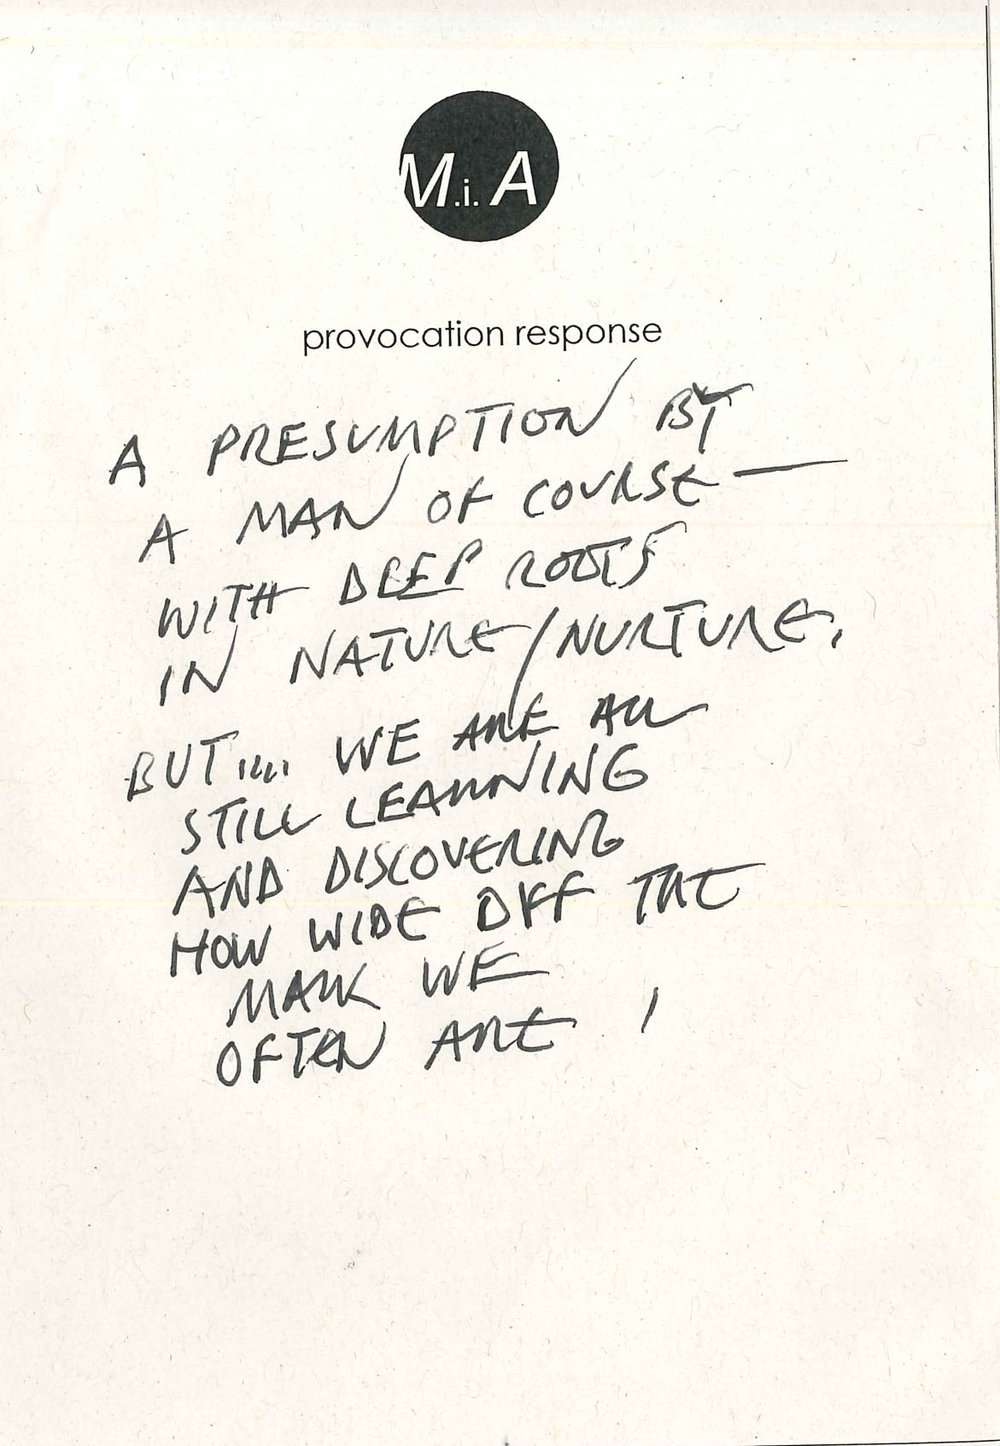 M.i.A
provocation response
A PRESUMPTION BY
A MAN OF COURSE —
WITH DEEP ROOTS
IN NATURE/NURTURE.
BUT.... WE ARE ALL
STILL LEARNING
AND DISCOVERING
HOW WIDE OFF THE
MARK WE
OFTEN ARE !